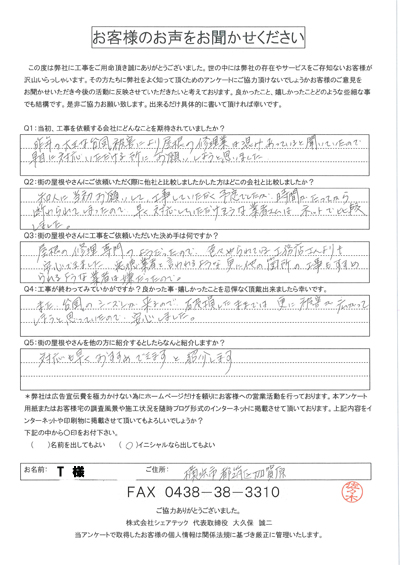 お客様のお声をお聞かせください
この度は弊社に工事をご用命頂き誠にありがとうございました。世の中には弊社の存在やサービスをご存知ないお客様が
沢山いらっしゃいます。その方たちに弊社をよく知って頂くためのアンケートにご協力頂けないでしょうかお客様のご意見を
お聞かせいただき今後の活動に反映させていただきたいと考えております。良かったこと、嬉しかったことどのような些細な事
でも結構です。是非ご協力お願い致します。出来るだけ具体的に書いて頂ければ幸いです。
Q1:当初、工事を依頼する会社にどんなことを期待されていましたか?
昨年の大きな台風被害により屋根の修理業は混みあっていると聞いていたので
早目に対応いただける所にお願いしようと思いました
Q2:街の屋根やさんにご依頼いただく際に他社と比較しましたかした方はどこの会社と比較しましたか?
知人に当初お願いして、工事していただく予定でしたが、時間がたってから
断わられてしまったので、早く対応していただけそうな業者さんはネットで比較
しました。
Q3:街の屋根やさんに工事をご依頼いただいた決め手は何ですか?
屋根の修理専門のようだったので、
Q4:工事が終わってみていかがですか?良かった事・嬉しかったことを忌憚なく頂戴出来ましたら幸いです。
また台風のシーズンが来るので、破損したままでは更に被害が
しまうと思っていたので安心しました。
Q5:街の屋根やさんを他の方に紹介するとしたらなんと紹介しますか?
対応も早くおすすめできますと紹介します
*弊社は広告宣伝費を極力かけない為にホームページだけを頼りにお客様への営業活動を行っております。本アンケート
用紙またはお客様宅の調査風景や施工状況を随時ブログ形式のインターネットに掲載させて頂いております。上記内容をイ
ンターネットや印刷物に掲載させて頂いてもよろしいでしょうか?
下記の中から〇印をお付下さい。
( )名前を出してもよい (〇)イニシャルなら出してもよい
お名前: T 様 ご住所: 横浜市都筑区加賀原
FAX 0438-38-3310
ご協力ありがとうございました。
株式会社シェアテック 代表取締役 大久保 誠二
当アンケートで取得したお客様の個人情報は関係法規に基づき厳正に管理いたします。